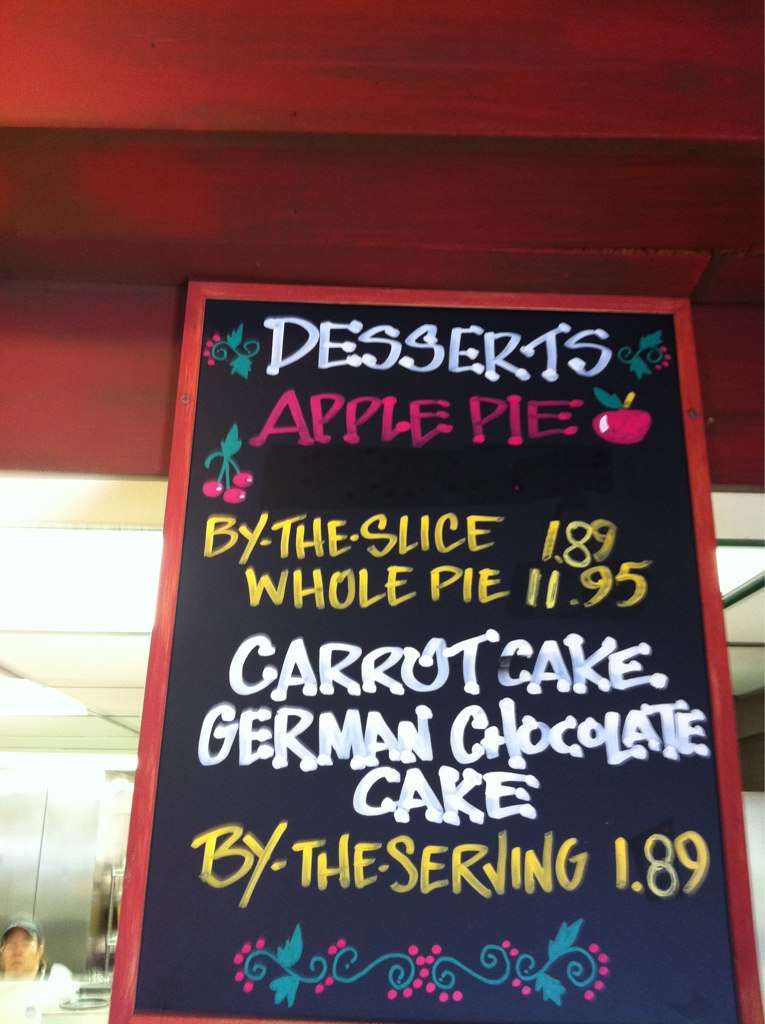 DESSERTS
APPLE PIE
BY-THE-SLICE 1.89
WHOLE PIE 11.95
CARROT CAKE
GERMAN CHOCOLATE
CAKE
BY-THE-SERVING 1.89